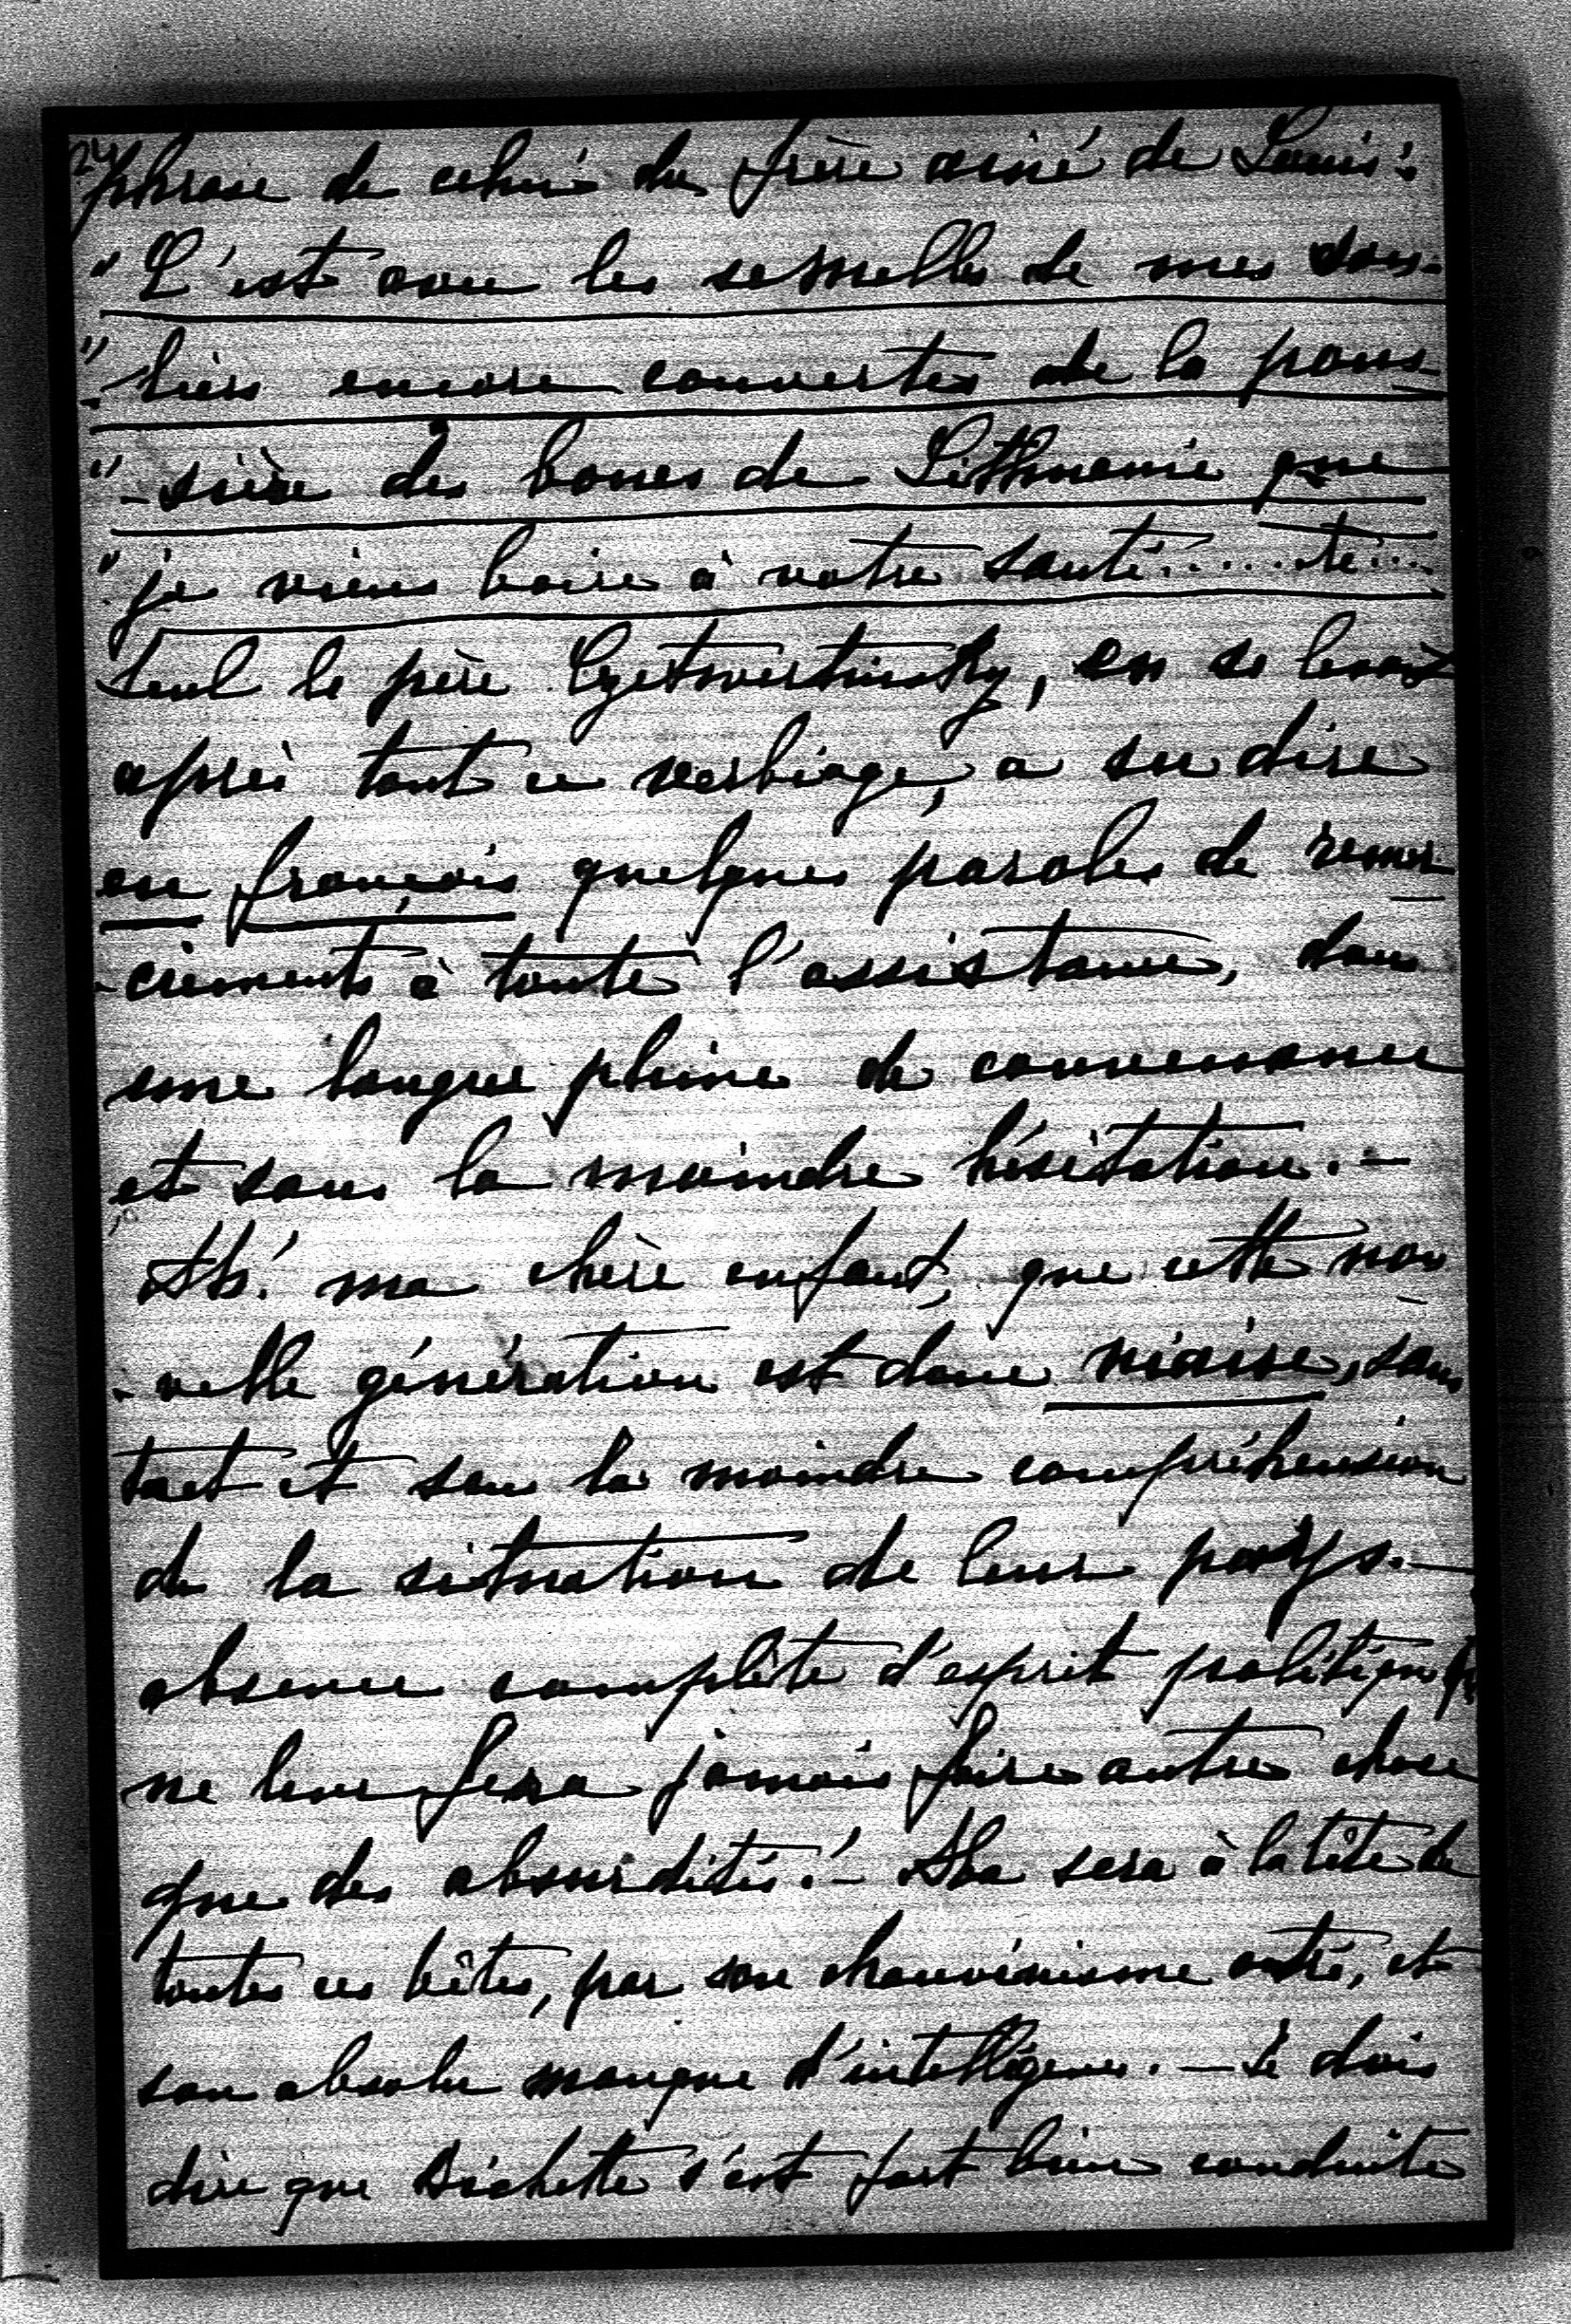 24
phrase de celui du frère ainé de Louis:
"C'est avec les semelles de mes sou-
"-liers encore couvertes de la pous-
"-sière des boues de Lithuanie que
"je viens boire à votre santé......té...
Seul le père Czetwertinsky, en se levant
après tout ce verbiage, a su dire
en français quelques paroles de remer-
-ciements à toute l'assistance, dans
une langue pleine de convenance
et sans la moindre hésitation.-
Ah! ma chère enfant, que cette nou
-velle génération est donc niaise, sans
tact et sans la moindre compréhension
de la situation de leur pays.-
absence complète d'esprit politique
ne leur fera jamais faire autre chose
que des absurdités!- sera à la tête de
toutes ces bêtes, par son chauvinisme outré, et
son absolu manque d'intelligence.- Je dois
dire que Bichette s'est fort bien conduite